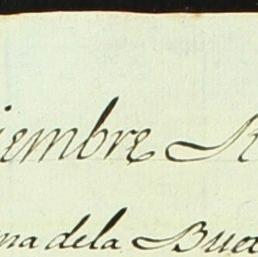 iembre R
ma dela Buel